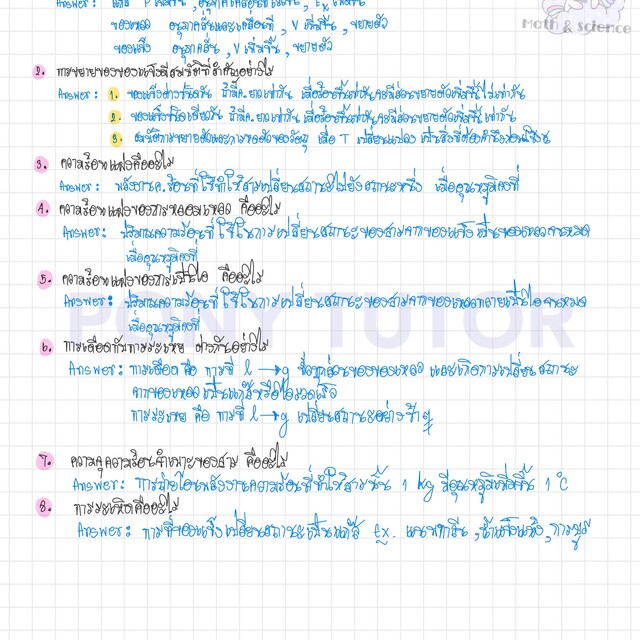 Answer: แก๊ส P เพิ่มขึ้น, อนุภาคเคลื่อนที่เร็วขึ้น, Ek เพิ่มขึ้น
ของเหลว อนุภาคสั่นและเคลื่อนที่, V เพิ่มขึ้น, ขยายตัว
ของแข็ง อนุภาคสั่น, V เพิ่มขึ้น, ขยายตัว
Math & science
2. การขยายของของแข็งมีสมบัติที่สำคัญอย่างไร
Answer: 1. ของแข็งต่างชนิดกัน ถ้ามีค.ยาวเท่ากัน เมื่อร้อนขึ้นเท่ากันจะมีส่วนขยายตัวเพิ่มขึ้นไม่เท่ากัน
2. ของแข็งชนิดเดียวกัน ถ้ามีค.ยาวเท่ากัน เมื่อร้อนขึ้นเท่ากันจะมีส่วนขยายตัวเพิ่มขึ้นเท่ากัน
3. สมบัติการขยายตัวและการหดตัวของวัตถุ เมื่อ T เปลี่ยนแปลง เป็นสิ่งที่ต้องคำนึงก่อนใช้งาน
3. ความร้อนแฝงคืออะไร
Answer: พลังงานค.ร้อนที่ใช้ทำให้สารเปลี่ยนสถานะไปยังสถานะหนึ่ง เมื่ออุณหภูมิคงที่
4. ความร้อนแฝงของการหลอมเหลว คืออะไร
Answer: ปริมาณความร้อนที่ใช้ในการเปลี่ยนสถานะของสารจากของแข็งเป็นของเหลวจนหมด
เมื่ออุณหภูมิคงที่
5. ความร้อนแฝงของการเป็นไอ คืออะไร
Answer: ปริมาณความร้อนที่ใช้ในการเปลี่ยนสถานะของสารจากของเหลวกลายเป็นไอจนหมด
เมื่ออุณหภูมิคงที่
PONY TUTOR
6. การเดือดกับการระเหย ต่างกันอย่างไร
Answer: การเดือด คือ การที่ l → g ทั้งทุกส่วนของของเหลว และเกิดการเปลี่ยนสถานะ
จากของเหลวเป็นแก๊สหรือไอรวดเร็ว
การระเหย คือ การที่ l → g เปลี่ยนสถานะอย่างช้าๆ
7. ความจุความร้อนจำเพาะของสาร คืออะไร
Answer: การถ่ายโอนพลังงานความร้อนที่ทำให้สารนั้น 1 kg มีอุณหภูมิเพิ่มขึ้น 1 °C
8. การระเหิดคืออะไร
Answer: การที่ของแข็งเปลี่ยนสถานะเป็นแก๊ส Ex. แนพทาลีน, น้ำแข็งแห้ง, การบูร